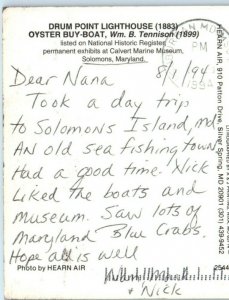 DRUM POINT LIGHTHOUSE (1883)
OYSTER BUY-BOAT, Wm. B. Tennison (1899)
listed on National Historic Register,
permanent exhibits at Calvert Marine Museum,
Solomons, Maryland.
Dear Nana 8/1/94
Took a day trip
to Solomons Island, md
AN old sea fishing town
Had a good time. Nick
Liked the boats and
museum. Saw lots of
Maryland Blue Crabs.
Hope all is well
Photo by HEARN AIR
+ Nick
PM
1994
HEARN AIR, 910 Patton Drive, Silver Spring, MD 20901 (301) 439-9452